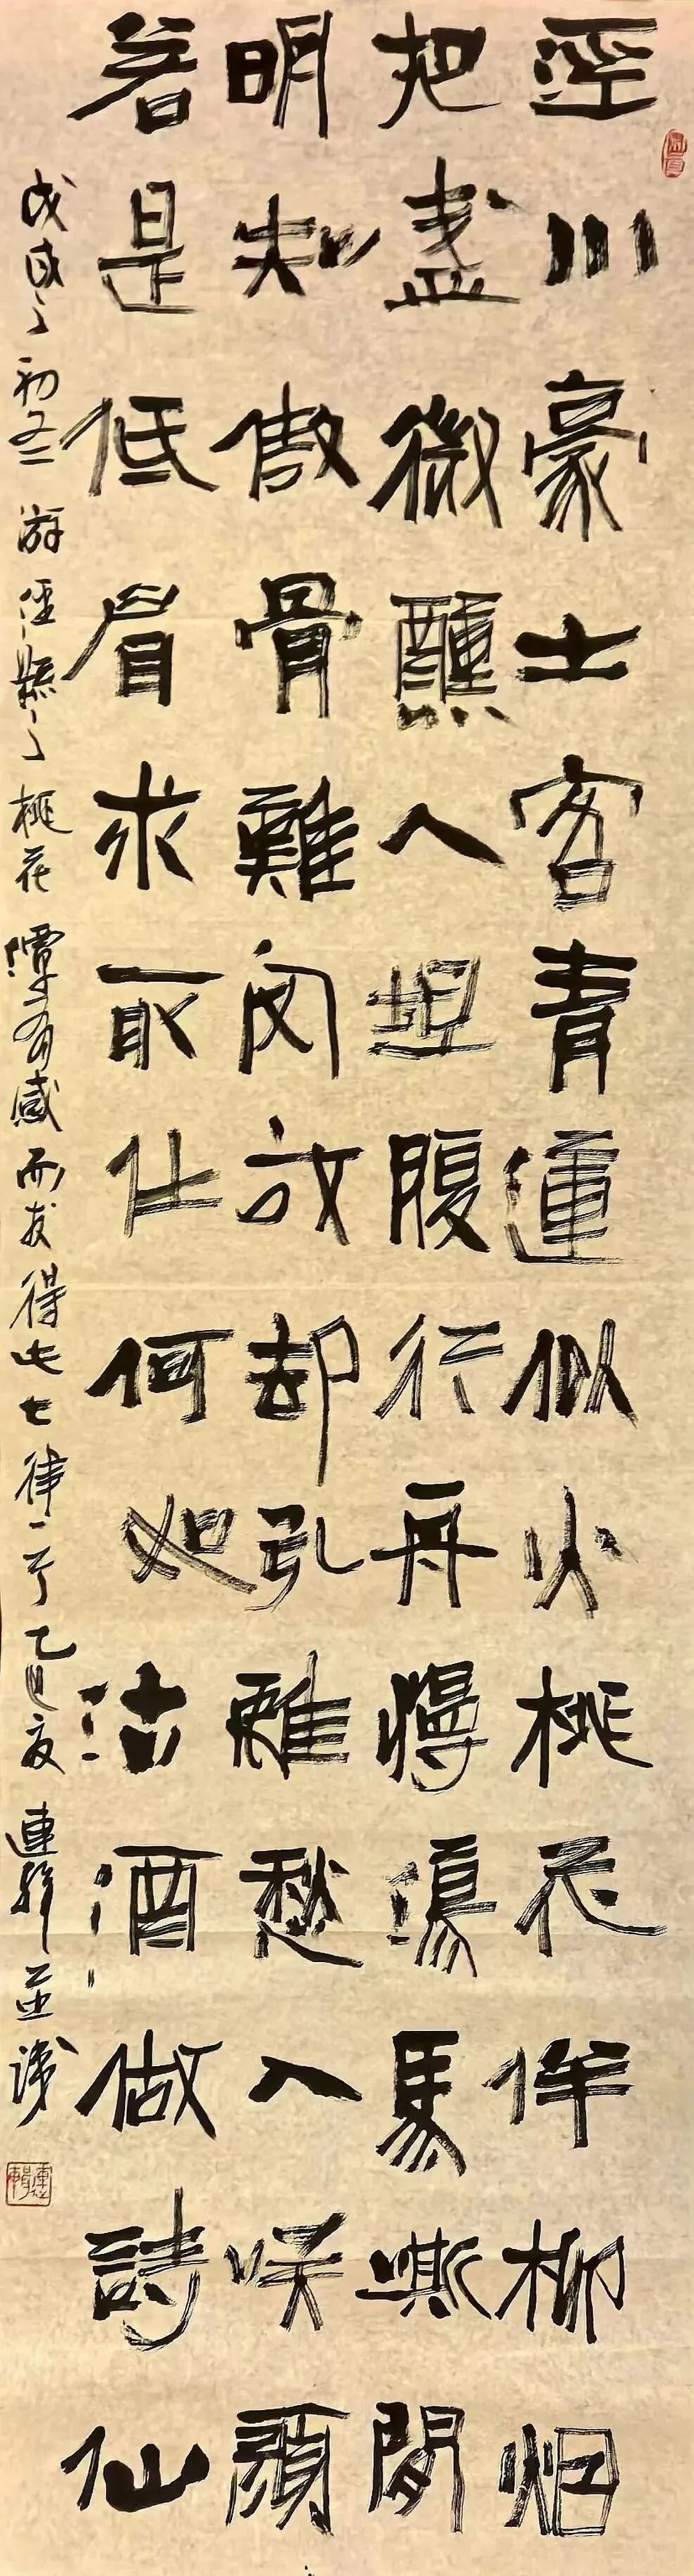 涇川豪士客青蓮似火桃花伴柳烟
把盞微醺人坦腹行舟慢蕩馬嘶間
明知傲骨難放却引離愁入咲顏
若是低眉求取仕何如沽酒做詩仙
戊戌之初冬游涇縣之桃花潭有感而发得此七律一首乙巳夏連輝並識